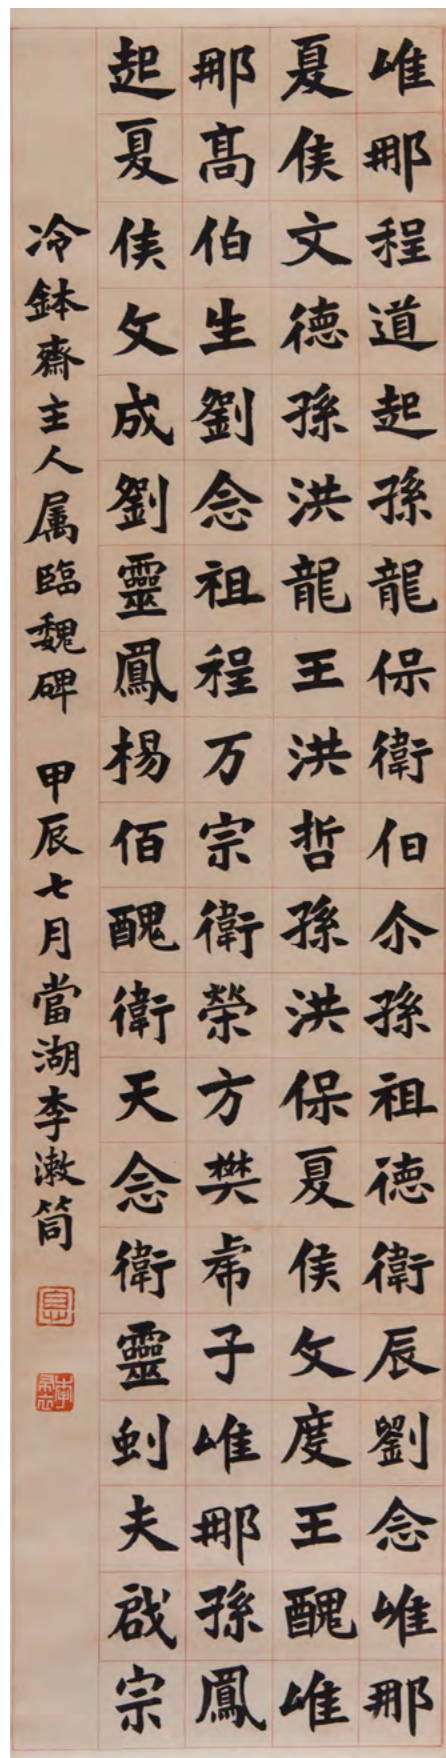 唯那程道起孫龍保衛伯尒孫祖德衛辰劉念唯那
夏侯文德孫洪龍王洪哲孫洪保夏侯文度王醜唯
那高伯生劉念祖程万宗衛榮方樊虎子唯那孫鳳
起夏侯文成劉靈鳳楊佰醜衛天念衛靈虬夫啟宗
冷鉢齋主人属臨魏碑 甲辰七月當湖李漱筒